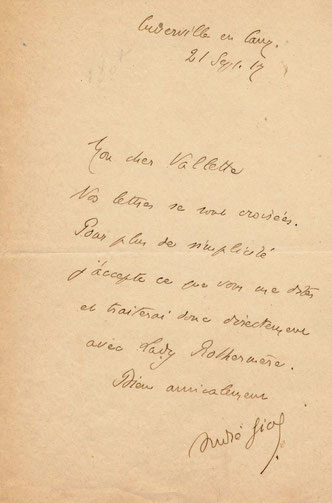 Cuverville en Caux.
21 Sept. 17
Mon cher Vallette
Nos lettres se sont croisées.
Pour plus de simplicité
j'accepte ce que vous me dites
et traiterai donc directement
avec Lady Rothermere.
Bien amicalement
André Gide